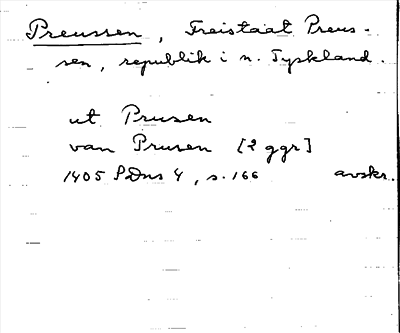 Preussen, Freistaat Preus-
sen, republik i n. Tyskland.
ut Prusen
van Prusen [2 ggr]
1405 SDns 4, s. 166 avskr.